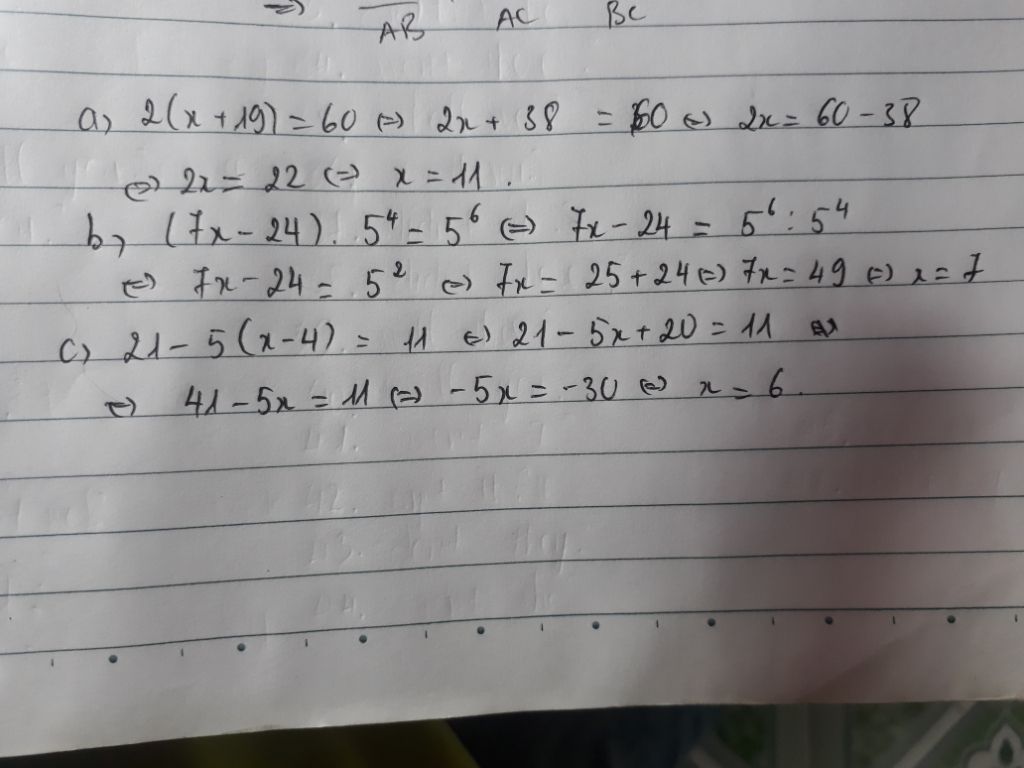 ⇒ AB AC BC
a) 2(x + 19) = 60 ⇔ 2x + 38 = 60 ⇔ 2x = 60 - 38
⇔ 2x = 22 ⇔ x = 11.
b) (7x - 24). 5⁴ = 5⁶ ⇔ 7x - 24 = 5⁶ : 5⁴
⇔ 7x - 24 = 5² ⇔ 7x = 25 + 24 ⇔ 7x = 49 ⇔ x = 7
c) 21 - 5(x - 4) = 11 ⇔ 21 - 5x + 20 = 11
⇔ 41 - 5x = 11 ⇔ -5x = -30 ⇔ x = 6.